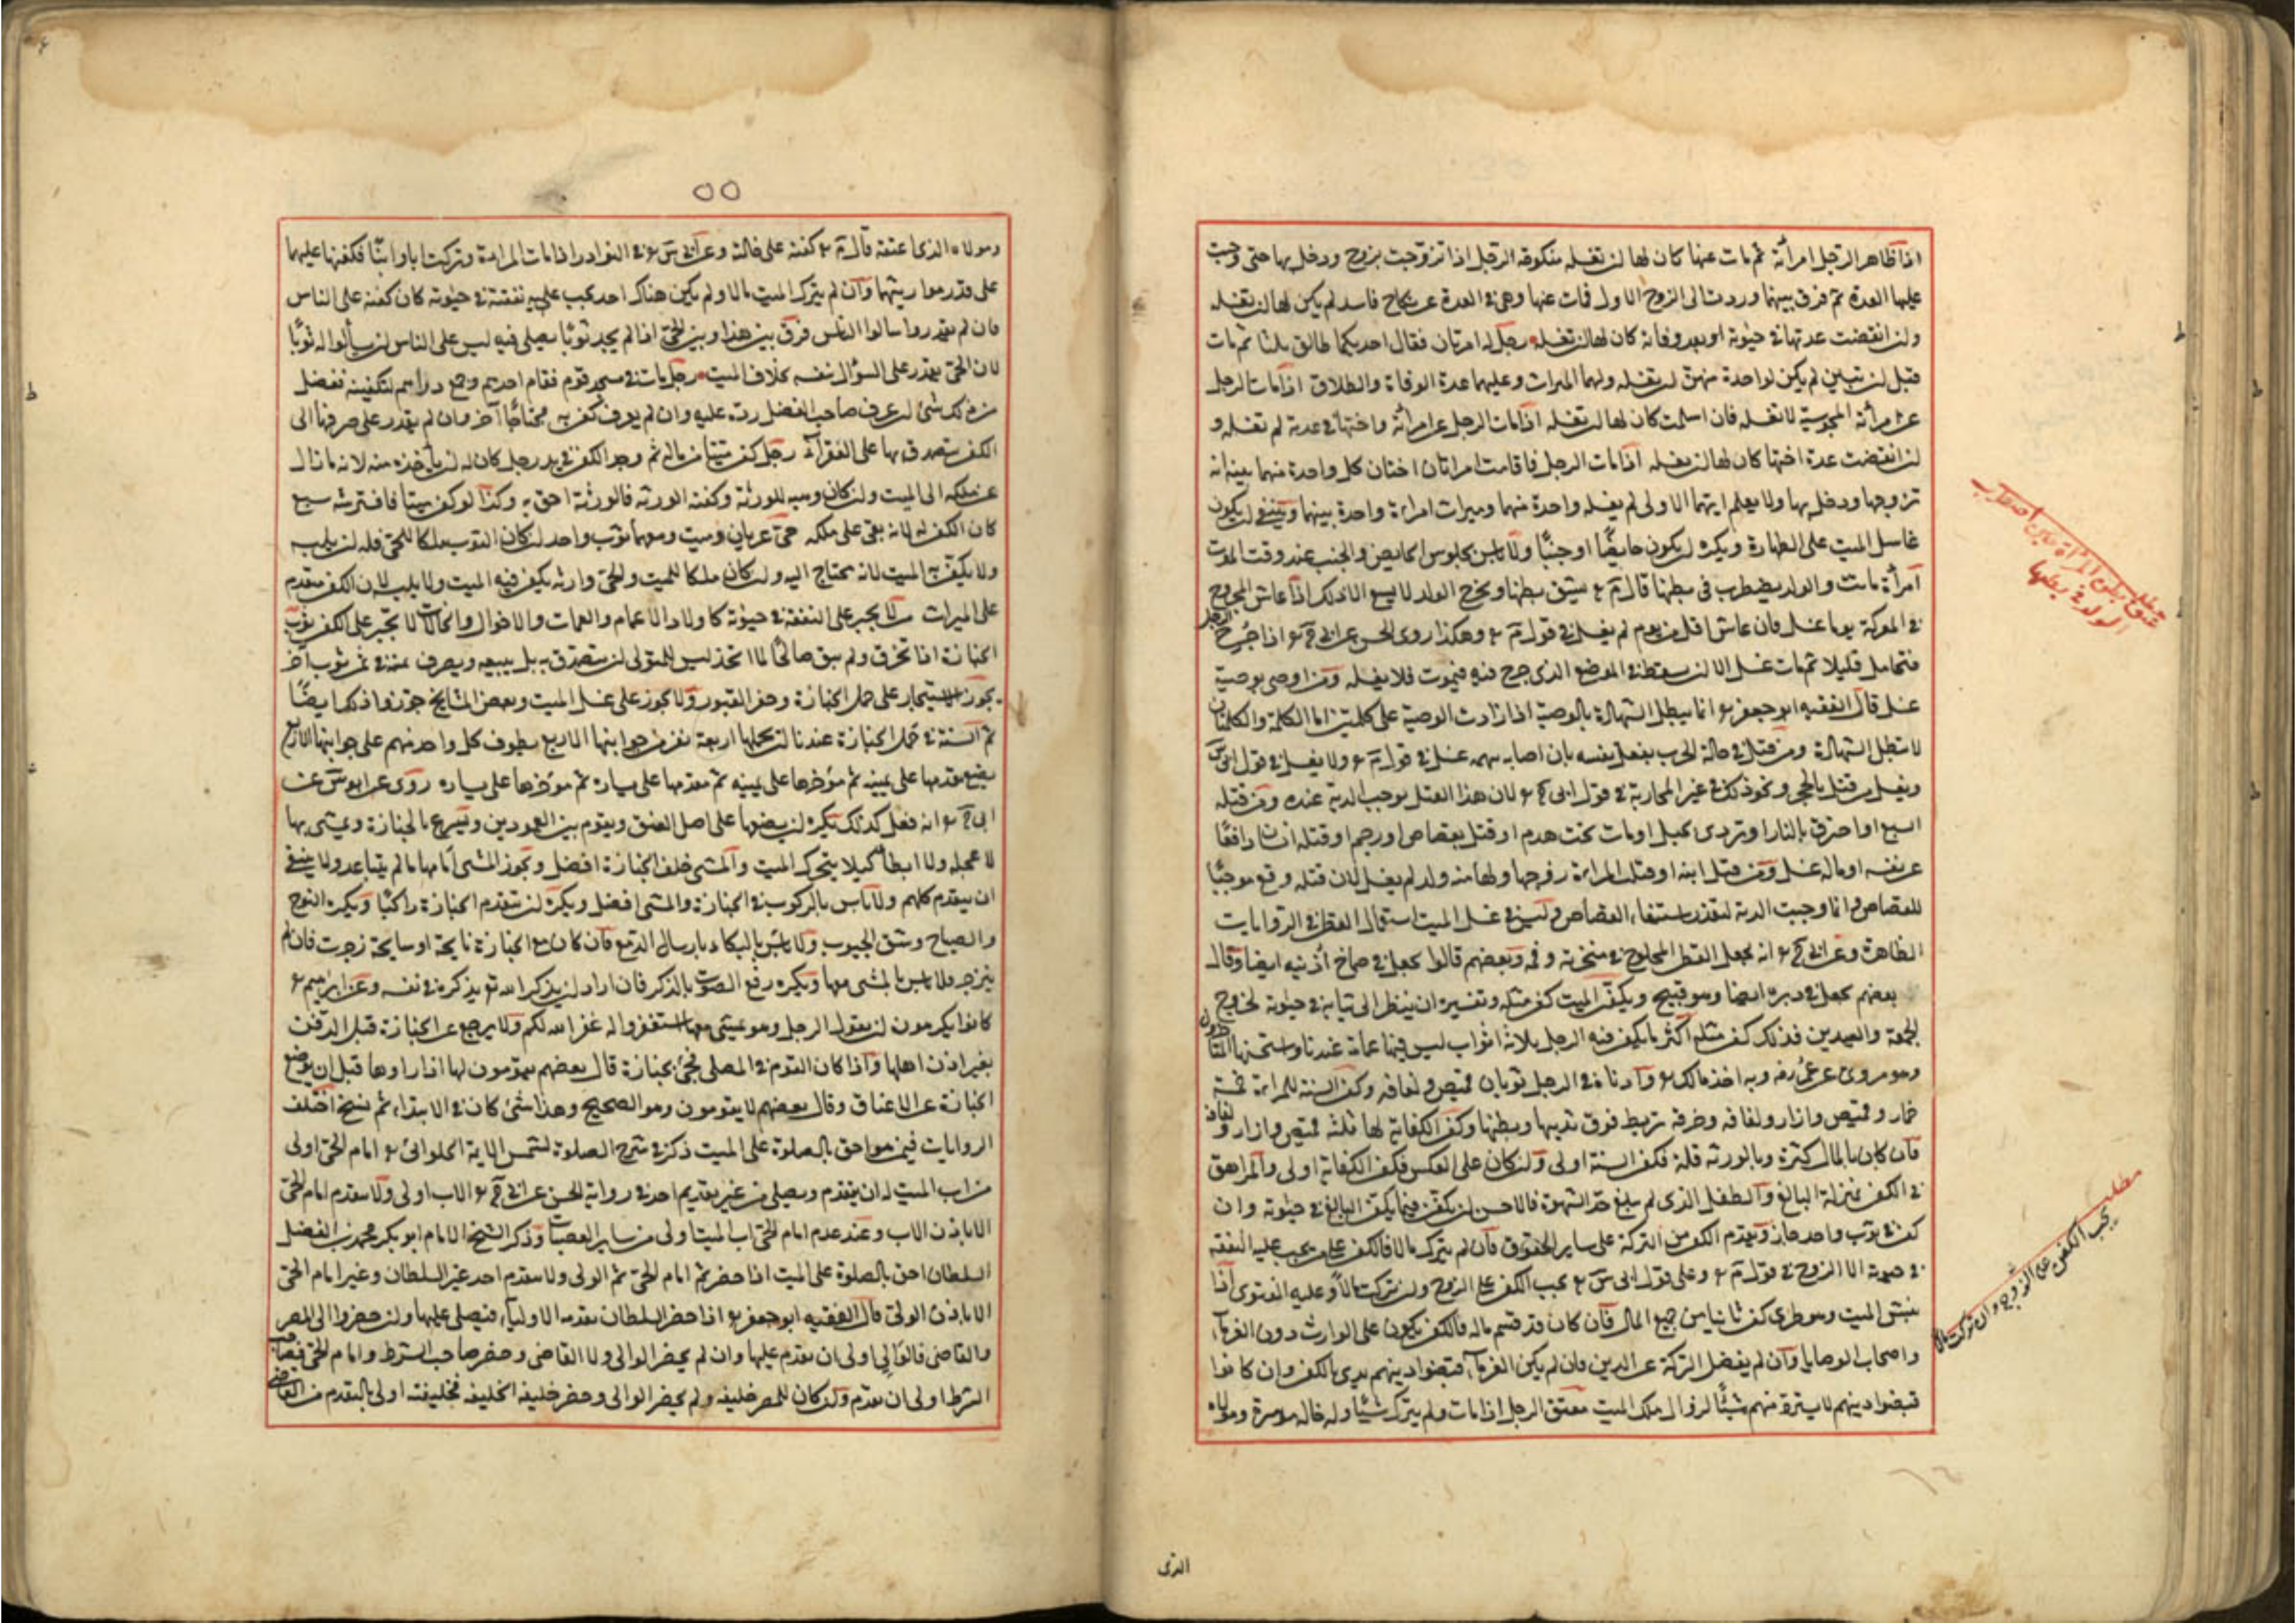 اذا ظاهر الرجل امرأته ثم مات عنها كان لها ان تغسله منكوحة الرجل اذا تزوجت بزوج ودخل بها حتى وجبت
عليها العدة ثم فرق بينهما وردت الى الزوج الاول فمات عنها وهى فى العدة عن نكاح فاسد لم يكن لها ان تغسله
وان انقضت عدتها فى حيوته او بعد وفاته كان لها ان تغسله رجل له امرتان فقال احديكما طالق ثلثا ثم مات
قبل ان تبين لم يكن لواحدة منهن ان تغسله ولهما الميراث وعليهما عدة الوفاة والطلاق اذا مات الرجل
عن امرأته المجوسية لا تغسله فان اسلمت كان لها ان تغسله اذا مات الرجل عن امرأته واختها فى عدته لم تغسله و
ان انقضت عدة اختها كان لها ان تغسله اذا مات الرجل فاقامت امراتان اختان كل واحدة منهما بينة انه
تزوجها ودخل بها ولا يعلم ايتهما الاولى لم يغسله واحدة منهما وميراث امراة واحدة بينهما وينبغى ان يكون
غاسل الميت على الطهارة ويكره ان يكون حايضا او جنبا ولا باس بجلوس الحايض والجنب عنده وقت الموت
امرأة ماتت والولد يضطرب فى بطنها قال م ع يشق بطنها ويخرج الولد لا يسع الا ذلك اذا عاش المجروح
فى المعركة يوما غسل فان عاش اقل من يوم لم يغسل فى قول م ع وهكذا روى الحسن عن ابى ح ع اذا جرح الرجل
فتحامل قليلا ثم مات غسل الا ان سقط فى الموضع الذى جرح فيه فيموت فلا يغسله ومن اوصى بوصية
غسل قال الفقيه ابو جعفر ع انما يبطل الشهادة بالوصية اذا زادت الوصية على كلمتين اما الكلمة والكلمتان
لا تبطل الشهادة ومن قتل فى حالة الحرب بفعل نفسه بان اصابه سهمه غسل فى قول م ع ولا يغسل فى قول ابى س
ويغسل من قتل بالحجر ونحو ذلك فى غير المحاربة فى قول ابى ح ع لان هذا القتل يوجب الدية عنده ومن قتله
السبع او احترق بالنار او تردى بجبل او مات تحت هدم او قتل بقصاص او رجم او قتله انسان دافعا
عن نفسه او ماله غسل ومن قتل ابنه او قتلت المراة زوجها ولها منه ولد لم يغسل لان قتله وقع موجبا
للقصاص وانما وجبت الدية لتعذر استيفاء القصاص وليس فى غسل الميت استعمال القطن فى الروايات
الظاهرة وعن ابى ح ع انه يجعل القطن المحلوج فى منخريه وفمه وبعضهم قالوا يجعل فى صماخ اذنيه ايضا وقال
بعضهم يجعل فى دبره ايضا وهو قبيح ويكفن الميت كفن مثله وتفسيره ان ينظر الى ثيابه فى حيوته لخروج
الجمعة والعيدين فذلك كفن مثله اكثر ما يكفن فيه الرجل ثلاثة اثواب ليس فيها عمامة عندنا واستحسنها المتاخرون
وهو مروى عن عمر رضه وبه اخذ مالك ع وادناه فى الرجل ثوبان قميص ولفافه وكفن السنة للمراة خمسة
خمار وقميص وازار ولفافه وخرقه تربط فوق ثدييها وبطنها وكفن الكفاية لها ثلثه قميص وازار ولفافة
فان كان بالمال كثرة وبالورثه قلة فكفن السنة اولى وان كان على العكس فكفن الكفاية اولى والمراهق
فى الكفن بمنزلة البالغ والطفل الذى لم يبلغ حد الشهوة فالاحسن ان يكفن فيما يكفن البالغ فى حيوته وان
كفن فى ثوب واحد جاز ويقدم الكفن من التركة على ساير الحقوق فان لم يترك مالا فالكفن على من يجب عليه النفقه
فى حيوته الا الزوج فى قول م ع وعلى قول ابى س ع يجب الكفن على الزوج وان تركت مالا وعليه الفتوى اذا
نبش الميت وهو طرى كفن ثانيا من جميع المال فان كان قد قسم ماله فالكفن يكون على الوارث دون الغرماء
واصحاب الوصايا وان لم يفضل التركة عن الدين فان لم يكن الغرماء قبضوا دينهم بدى بالكفن وان كانوا
قبضوا دينهم لا يسترد منهم شيئا لزوال ملك الميت معتق الرجل اذا مات ولم يترك شيئا وله خاله موسرة ومولاه
مطلب
يشق بطن المرأة
الولد فى بطنها
مطلب
يجب الكفن على الزوج وان تركت مالا
الذى
٥٥
ومولاه الذى اعتقه قال م ع كفنه على خالته وعن ابى س ع فى النوادر اذا ماتت المراة وتركت ابا وابنا فكفنها عليهما
على قدر مواريثهما وان لم يترك الميت مالا ولم يكن هناك احد يجب عليه نفقته فى حيوته كان كفنه على الناس
فان لم يقدروا سالوا الناس فرق بين هذا وبين الحى اذا لم يجد ثوبا يصلى فيه ليس على الناس ان يسألوا له ثوبا
لان الحى يقدر على السؤال بنفسه بخلاف الميت رجل مات فى مسجد قوم فقام احدهم وجمع دراهم لتكفينه ففضل
من ذلك شئ ان عرف صاحب الفضل رده عليه وان لم يعرف كفن به محتاجا آخر وان لم يقدر على صرفها الى
الكفن يتصدق بها على الفقراء رجل كفن ميتا من ماله ثم وجد الكفن فى يد رجل كان له ان يأخذه منه لانه ما زال
عن ملكه الى الميت وان كان وهبه للورثة وكفنه الورثه فالورثة احق به وكذا لو كفن ميتا فافترسه سبع
كان الكفن له لانه بقى على ملكه حى عريان وميت ومعهما ثوب واحد ان كان الثوب ملكا للحى فله ان يلبسه
ولا يكفن به الميت لانه يحتاج اليه وان كان ملكا للميت والحى وارثه يكفن فيه الميت ولا يلبسه لان الكفن مقدم
على الميراث من لا يجبر على النفقة فى حيوته كاولاد الاعمام والعمات والاخوال والخالات لا يجبر على الكفن ثوب
الجنازة اذا تخرق ولم يبق صالحا لما اتخذ ليس للمتولى ان يتصدق به بل يبيعه ويصرف ثمنه فى ثمن ثوب آخر
يجوز الاستيجار على حمل الجنازة وحفر القبور ولا يجوز على غسل الميت وبعض المشايخ جوزوا ذلك ايضا
ثم السنة فى حمل الجنازة عندنا ان يحملها اربعة نفر من جوانبها الاربع يطوف كل واحد منهم على جوانبها الاربع
يضع مقدمها على يمينه ثم مؤخرها على يمينه ثم مقدمها على يساره ثم مؤخرها على يساره روى عن ابو س عن
ابى ح ع انه فعل كذلك يكره ان يضعها على اصل العنق ويقوم بين العمودين ويسرع بالجنازة ويمشى بها
لا عجله ولا ابطأ كيلا يتحرك الميت والمشى خلف الجنازة افضل ويجوز المشى امامها ما لم يتباعد ولا ينبغى
ان يتقدم كلهم ولا باس بالركوب فى الجنازة والمشى افضل ويكره ان يتقدم الجنازة راكبا ويكره النوح
والصياح وشق الجيوب ولا باس بالبكاء بارسال الدمع فان كان مع الجنازة نايحة او صايحة زجرت فان لم
ينزجر ولا باس بالمشى معها ويكره رفع الصوت بالذكر فان اراد ان يذكر الله تع يذكره فى نفسه وعن ابراهيم ع
كانوا يكرهون ان يقول الرجل وهو يمشى معها استغفروا له غفر الله لكم ولا يرجع عن الجنازة قبل الدفن
بغير اذن اهلها واذا كان القوم فى المصلى فجئ بجنازة قال بعضهم يقومون لها اذا راوها قبل ان يوضع
الجنازة عن الاعناق وقال بعضهم لا يقومون وهو الصحيح وهذا شئ كان فى الابتداء ثم نسخ اختلف
الروايات فيمن هو احق بالصلوة على الميت ذكر فى شرح الصلوة لشمس الايمة الحلوانى ع امام الحى اولى
من اب الميت له ان يتقدم ويصلى من غير تقديم احد فى رواية الحسن عن ابى ح ع الاب اولى ولا يتقدم امام الحى
الا باذن الاب وعند عدم امام الحى اب الميت اولى من ساير العصبات وذكر الشيخ الامام ابو بكر محمد بن الفضل
السلطان احق بالصلوة على الميت اذا حضر ثم امام الحى ثم الولى ولا يتقدم احد غير السلطان وغير امام الحى
الا باذن الولى قال الفقيه ابو جعفر ع اذا حضر السلطان يقدمه الاولياء فيصلى عليها وان حضر والى المصر
والقاضى فالوالى اولى ان يتقدم عليها وان لم يحضر الوالى ولا القاضى وحضر صاحب الشرط وامام الحى فصاحب
الشرط اولى ان يقدم وان كان للمصر خليفه ولم يحضر الوالى وحضر خليفه الخليفه فخليفته اولى بالتقدم من القاضى